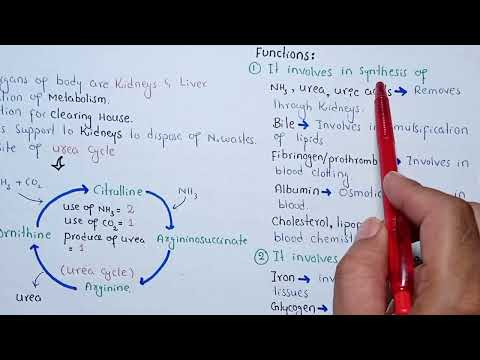 rgans of body are Kidneys & Liver
tion of Metabolism.
tion for clearing House.
s Support to Kidneys to dispose of N.wastes.
ite of urea cycle
H₃ + CO₂
Citrulline
NH₃
use of NH₃ = 2
use of CO₂ = 1
produce of urea = 1
Ornithine
Argininosuccinate
(urea cycle)
urea
Arginine
Functions:
① It involves in Synthesis of
NH₃, urea, uric → Removes
through Kidneys.
Bile → Involves in mulsification
of lipids
Fibrinogen/prothromb Involves in
blood clotting
Albumin → Osmotic in
blood
Cholesterol, lipop
blood chemist
② It involves
Iron → in
tissues
Glycogen →